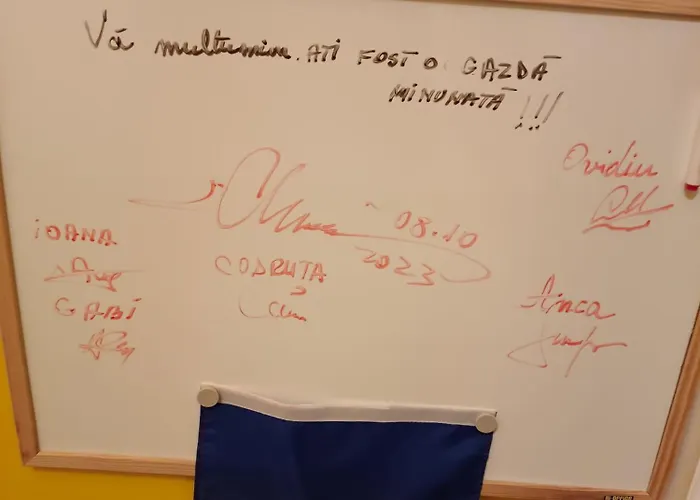 Vă multumim. ATI FOST O GAZDĂ
MINUNATĂ!!!
Ovidiu
08.10
2023
IOANA
CODRUTA
GABI
Anca